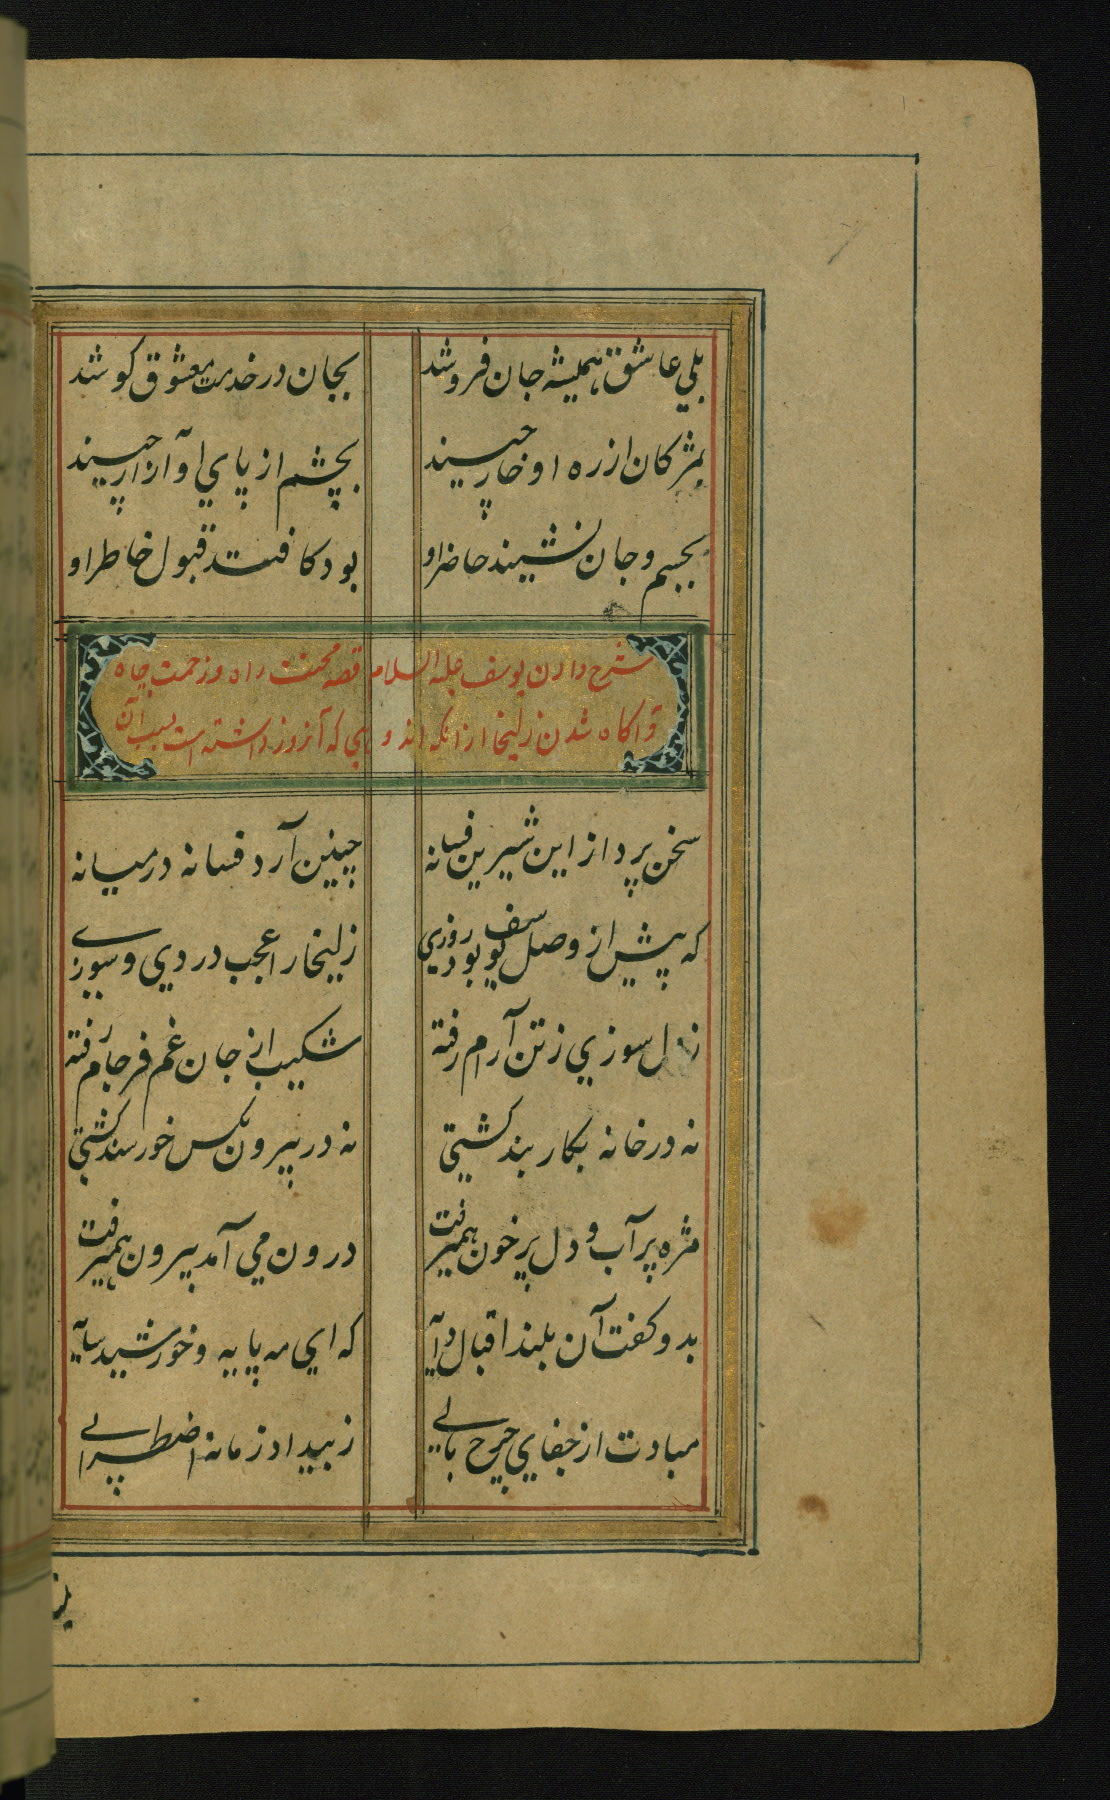 بلي عاشق هميشه جان فروشد
بجان در خدمت معشوق كوشد
بمژكان از ره او خار چيند
بچشم از پاي او آزار چيند
بجسم و جان نشيند حاضر او
بود كافتد قبول خاطر او
شرح دادن يوسف عليه السلام قصه محنت راه و زحمت چاه
و آكاه شدن زليخا از انكه اندوهي كه آنروز داشته است بسبب آن
سخن پرداز اين شيرين فسانه
چنين آرد فسانه در ميانه
كه پيش از وصل يوسف بود روزي
زليخا را عجب دردي و سوزي
ز دل سوزي ز تن آرام رفته
شكيب از جان غم فرجام رفته
نه در خانه بكار بند كشتي
نه در بيرون بكس خورسند كشتي
مژه پر آب و دل پر خون هميرفت
درون مي آمد بيرون هميرفت
بدو كفت آن بلند اقبال دايه
كه اي مه پايه و خورشيد سايه
مبادت از جفاي چرخ بالي
ز بيداد زمانه اضطرابي